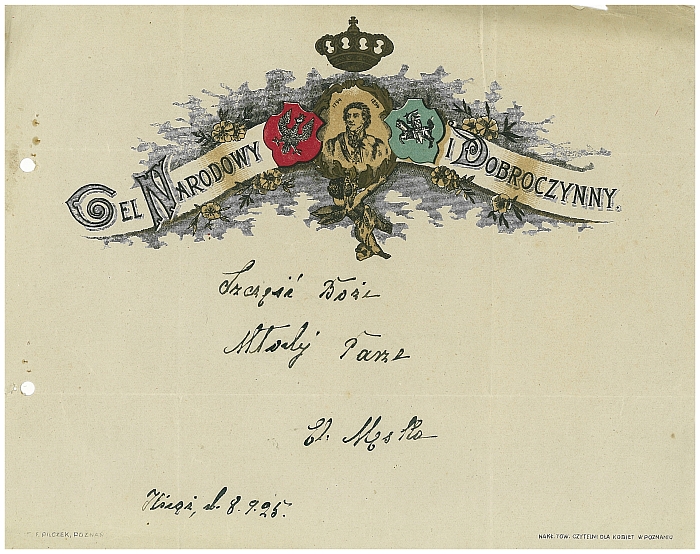 CEL NARODOWY I DOBROCZYNNY.
Szczęść Boże
Młodej Parze
El. Męska
Książ, d. 8.9.25.
F. PILCZEK, POZNAŃ
NAKŁ. TOW. CZYTELNI DLA KOBIET W POZNANIU